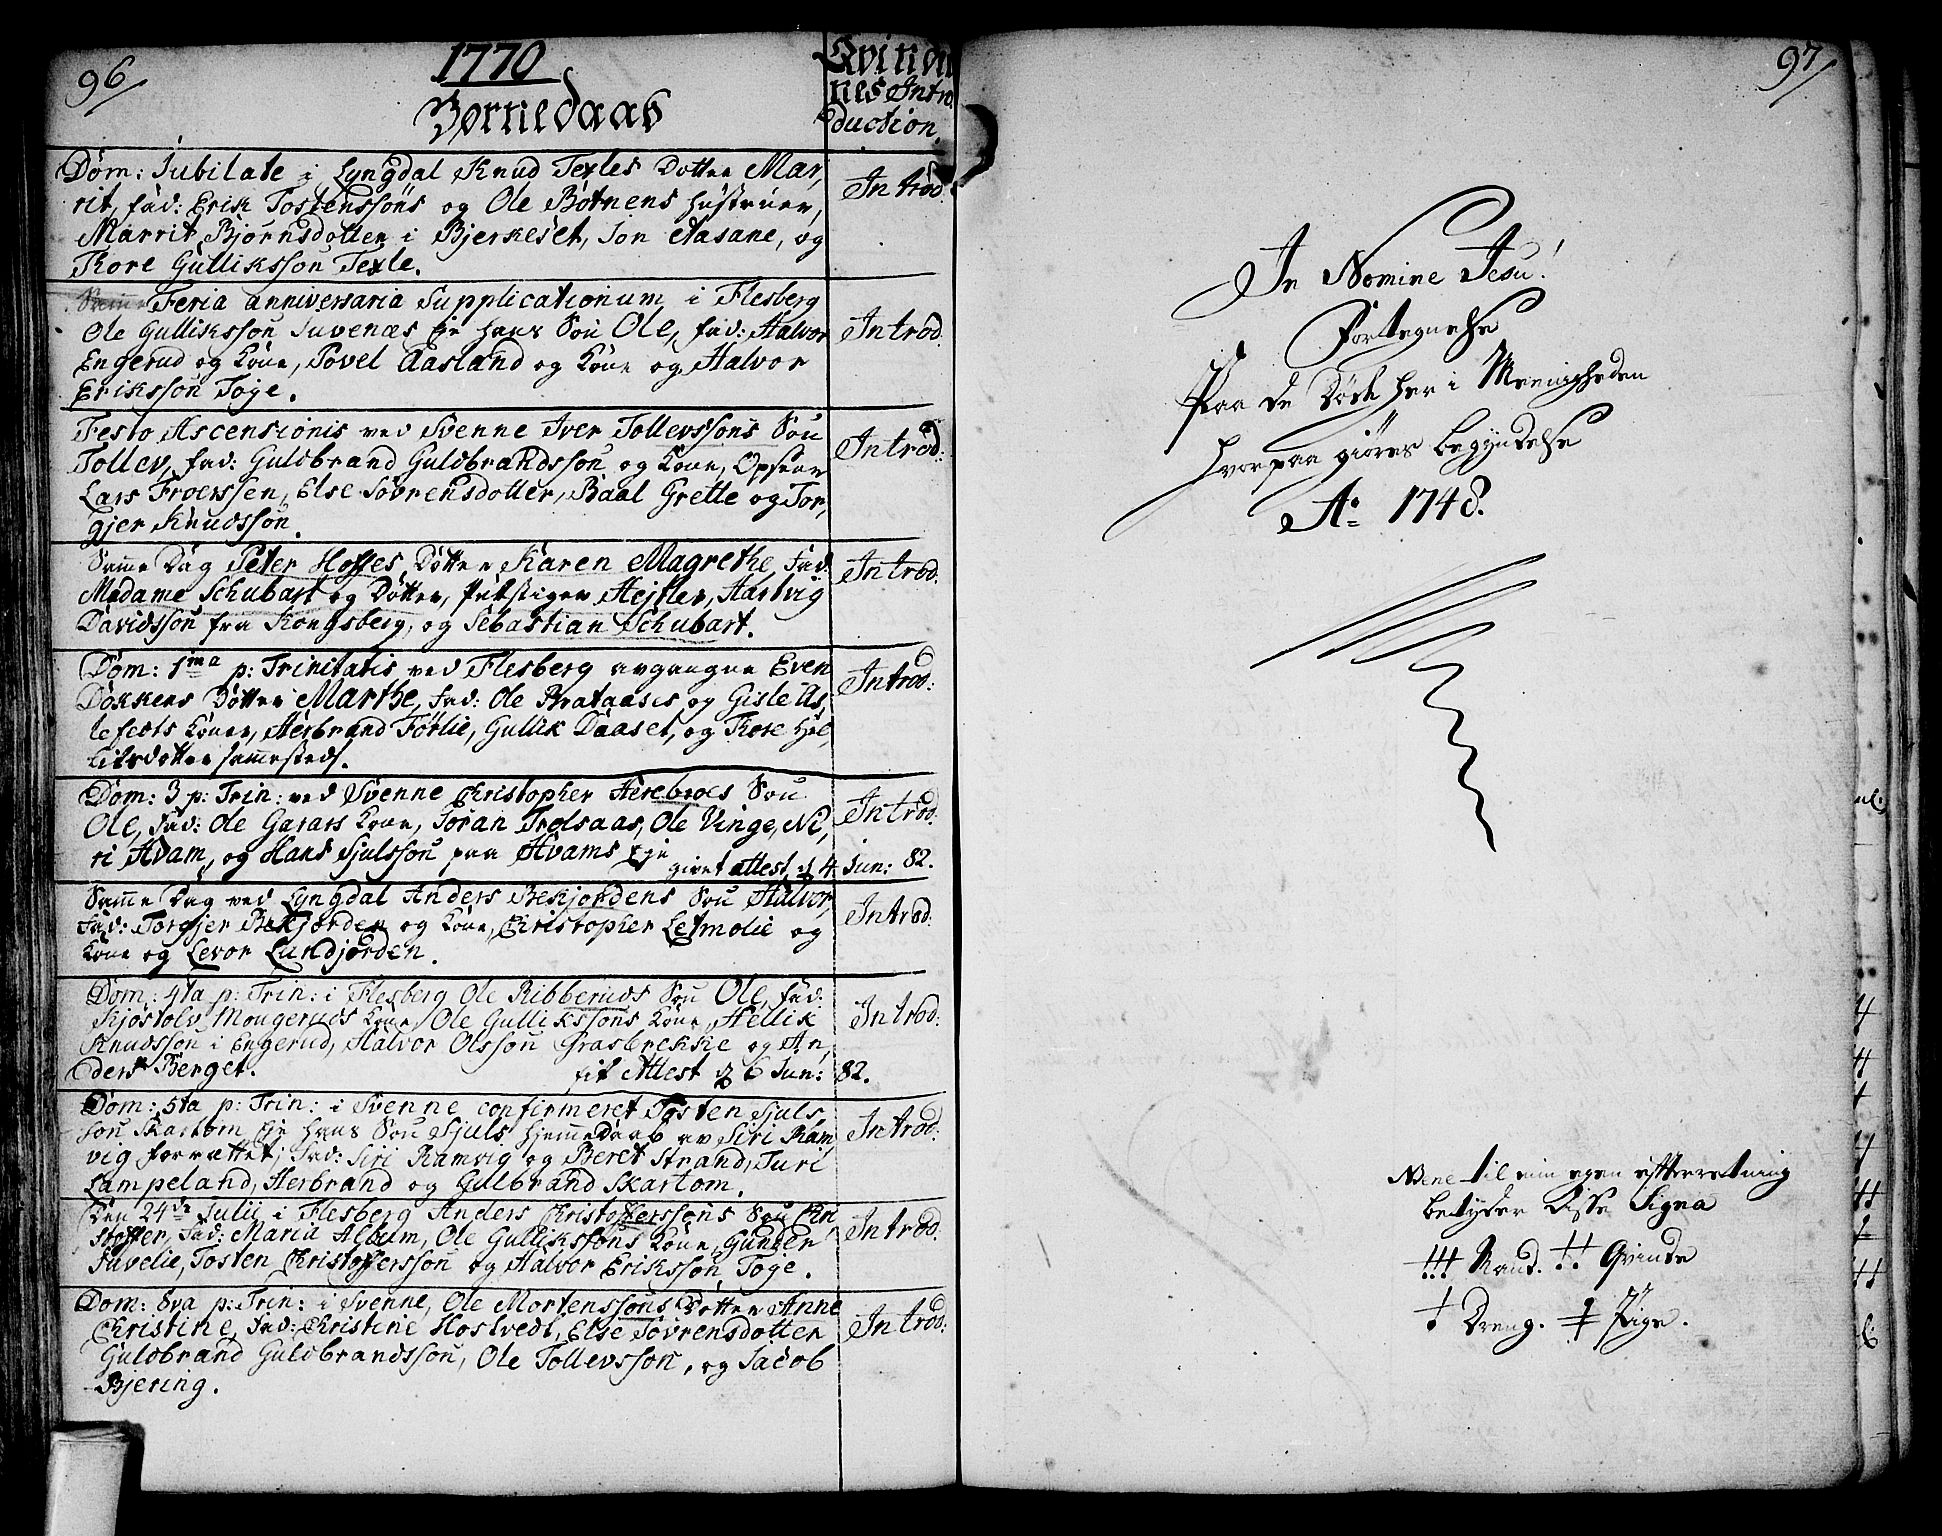 96
1770
Børnedaab
Qvinder
nes Intro
duction.
Dom: Jubilate i Lyngdal Knud Texles Dotter Mar,
rit, fad: Erik Tostenssöns og Ole Bøtnens Hustruer,
Marrit Bjørnsdotter i Bjerkeset, Jon Aasane, og
Tore Gulliksson Texle.
Introd.
Feria anniversaria Supplicationum i Flesberg
Ole Gulliksson Juvenæs Eje hans Sön Ole, fad: Halvor
Engerud og Kone, Povel Aasland og Kone og Halvor
Eriksson Toge.
Introd.
Festo Ascensionis ved Svenne Iver Tollevssons Sön
Tollev, fad: Guldbrand Guldbrandsson og Kone, Opseer
Lars Froerssen, Else Sövrensdotter, Paal Grette og Tor,
gjer Knudsson.
Introd:
Samme Dag Peter Hoffes Dotter Karen Magrethe, fad.
Madame Schubart og Dotter, Stiger Hejtler, Hartvig
Davidsson fra Kongsberg, og Sebastian Schubart.
Introd:
Dom: 1ma p: Trinitatis ved Flesberg avgangne Even
Dokkens Dotter Marthe, fad: Ole Brataases og Gisle As,
lefets Koner, Herbrand Førlie, Gullik Daaset, og Tore Hel,
liksdotter sammesteds.
Introd:
Dom: 3 p: Trin: ved Svenne Christopher Herebroes Sön
Ole, fad: Ole Gavars Kone, Joran Trolsaas, Ole Vinge, Ni,
ri Hvam, og Hans Sjulsson paa Hvams Eje
givet Attest d 4 Jun: 82.
Introd:
Samme Dag ved Lyngdal Anders Bekjordens Sön Halvor,
fad: Torgjer Bekjorden og Kone, Christopher Letmolie og
Kone og Levor Lundjorden.
Introd:
Dom: 4ta p: Trin: i Flesberg Ole Ribberuds Sön Ole, fad:
Kjøstolv Mougeruds Kone, Ole Gullikssons Kone, Hellik
Knudsson i Engerud, Halvor Olsson Grasbrekke og An,
ders Berget. fit Attest d 6 Jun: 82.
Introd:
Dom: 5ta p: Trin: i Svenne confirmeret Tosten Sjuls,
son Skartom Eje hans Sön Sjuls Hjemmedaab av Siri Ram,
vig forrettet; fad: Siri Ramvig og Beret Strand, Turi
Lampeland, Herbrand og Gulbrand Skartom.
Introd:
Den 24de Julii i Flesberg Anders Christofferssons Sön Chri
stoffer, fad: Maria Album, Ole Gullikssons Kone, Gunder
Juvelie, Tosten Christoffersson og Halvor Eriksson Toge.
Introd:
Dom: 8va p: Trin: i Svenne, Ole Mortenssons Dotter Anne
Christine, fad: Christine Hostvedt, Else Sovrensdotter
Guldbrand Guldbrandsson, Ole Tollevsson, og Jacob
Bjering.
Introd:
97
In Nomine Jesu!
Fortegnelse
Paa de Døde her i Meenigheden
hvorpaa giøres begyndelse
Ao 1748.
Nbene til min egen efterretning
betyder disse Signa
††† Mand. †† Qvinde
† Dreng. ‡ Pige.